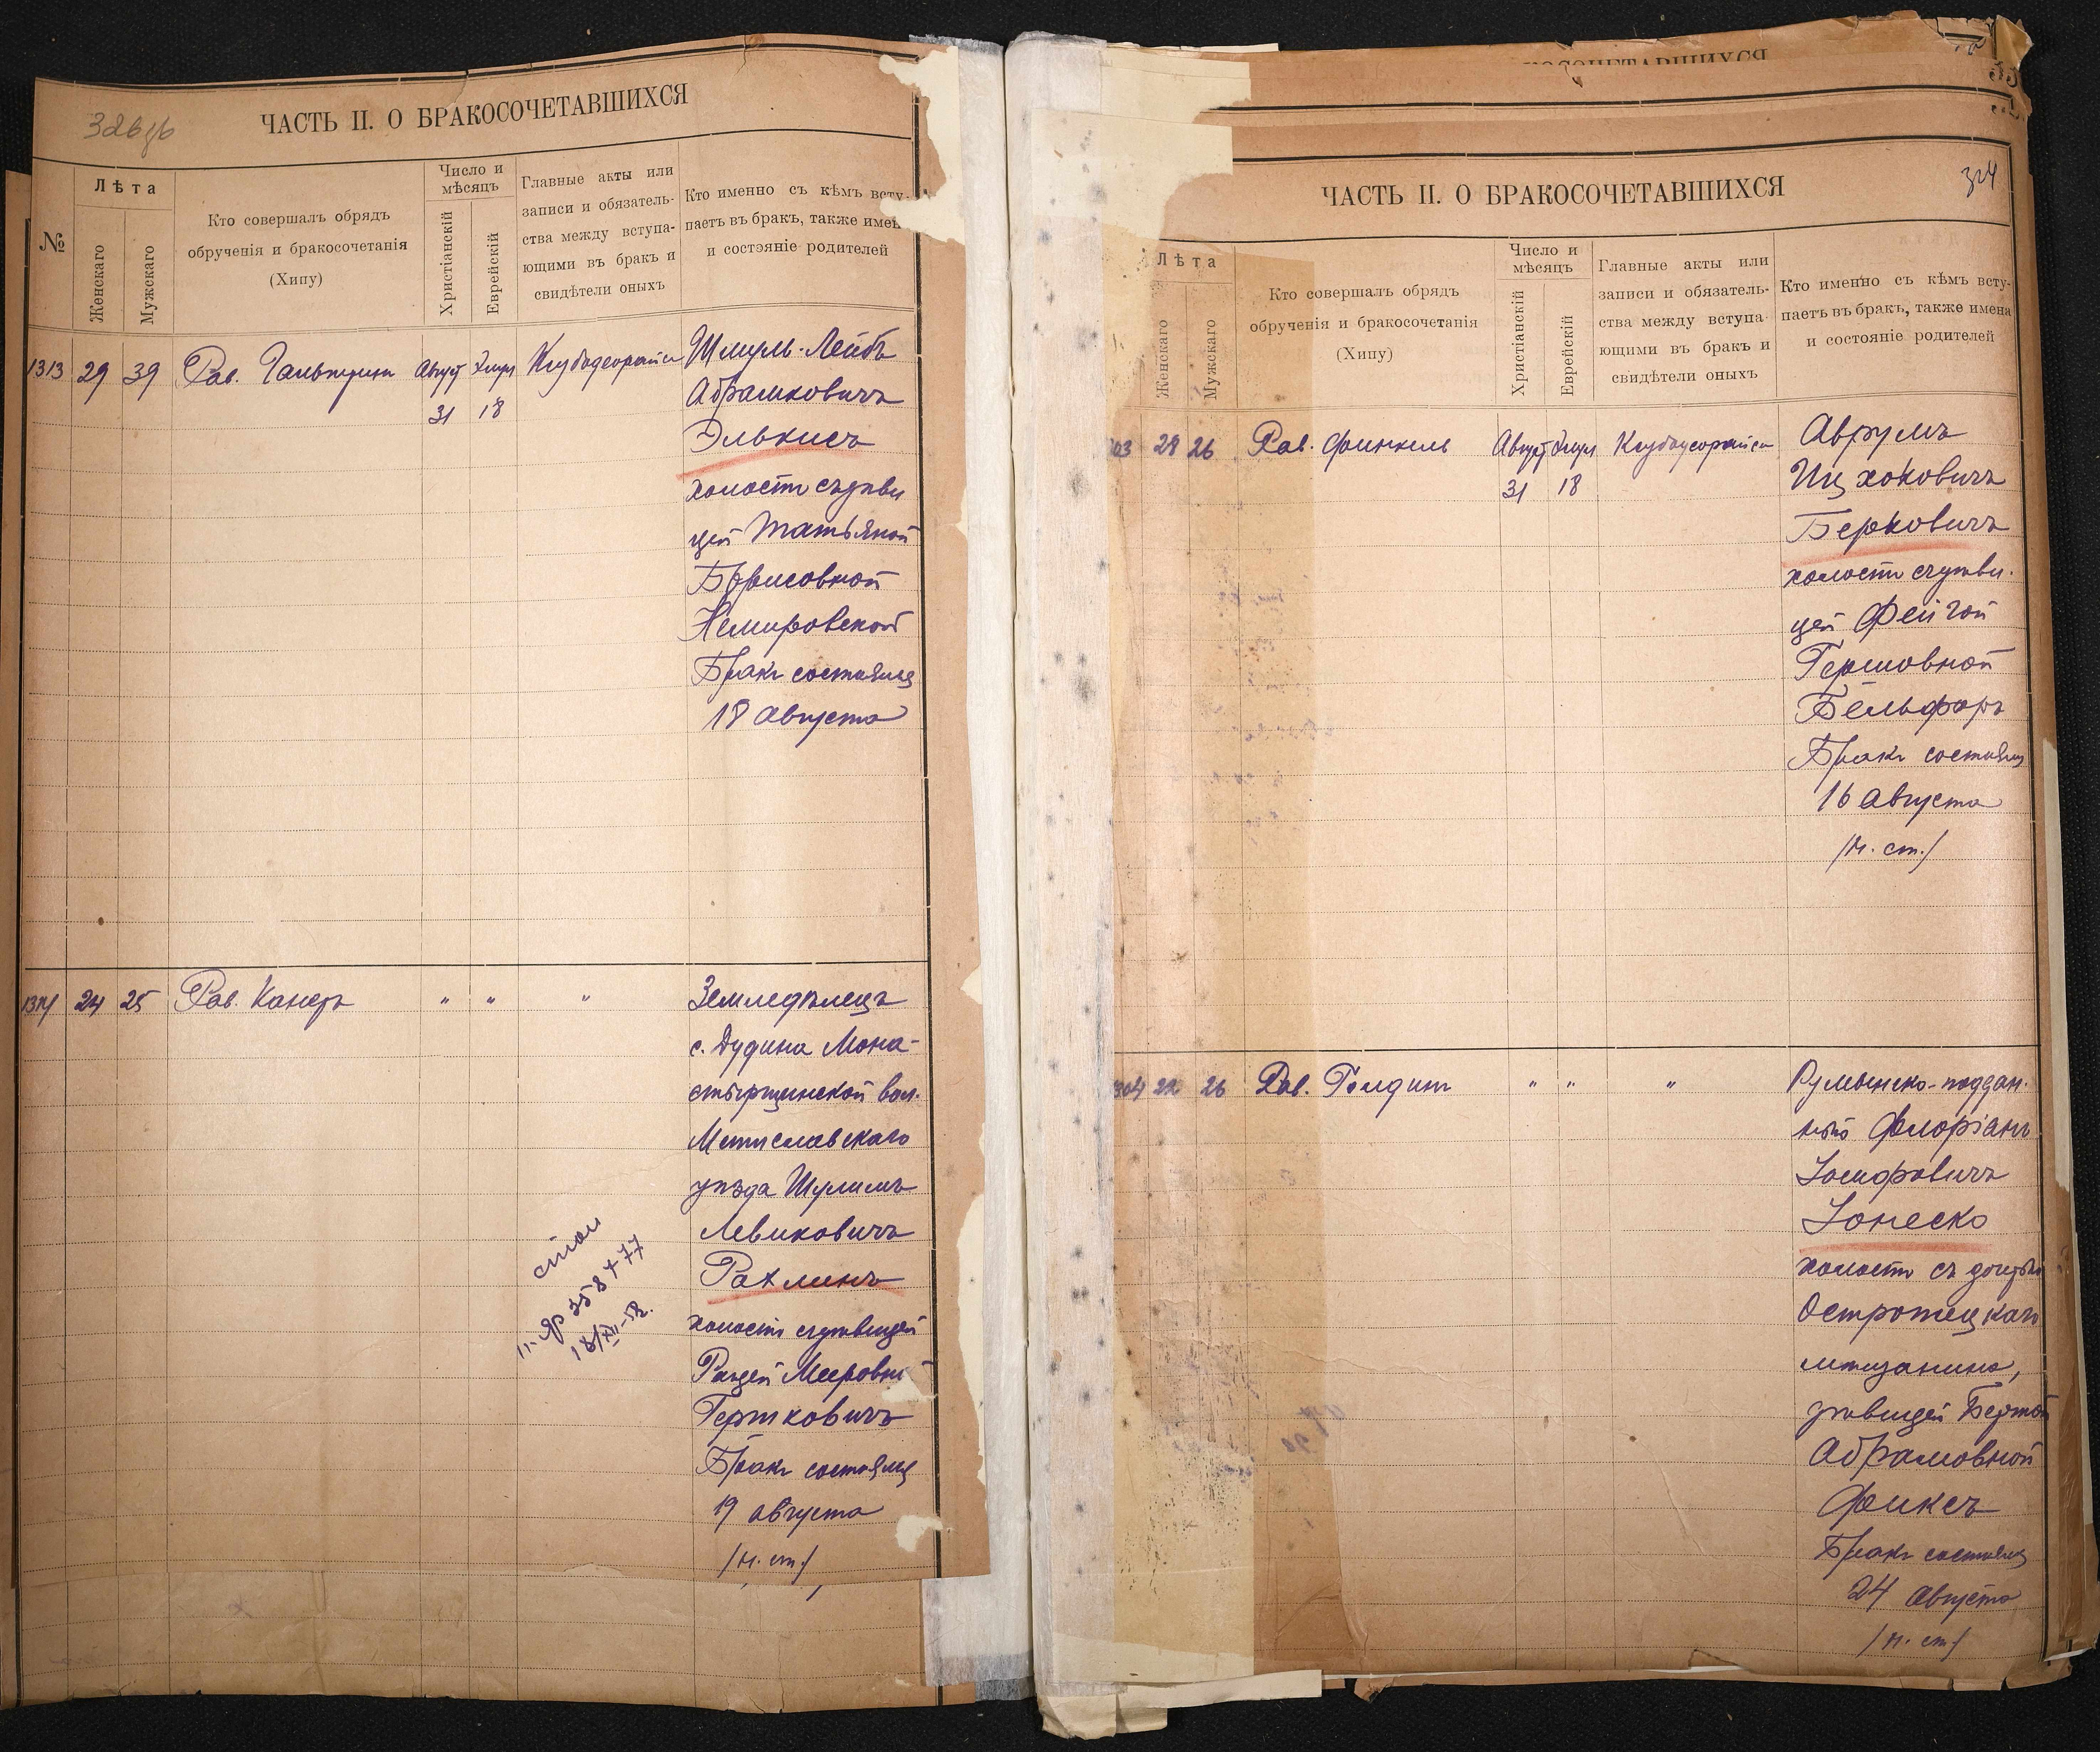 326 об
ЧАСТЬ II. О БРАКОСОЧЕТАВШИХСЯ
№
Лѣта
Женскаго
Мужскаго
Кто совершалъ обрядъ
обрученія и бракосочетанія
(Хипу)
Число и
мѣсяцъ
Христіанскій
Еврейскій
Главные акты или
записи и обязатель-
ства между вступа-
ющими въ бракъ и
свидѣтели оныхъ
Кто именно съ кѣмъ всту-
паетъ въ бракъ, также имен
и состояніе родителей
1313 29 39 Рав. Гальперинъ Август Элул
31 18
Шмуль-Лейбъ
Абрамковичъ
Элькисъ
холостъ съ дѣви
цей Татьяной
Борисовной
Немировской
Бракъ состоялся
18 августа
1314 24 25 Рав. Канеръ " " "
Земледѣлецъ
с. Дудина Мона-
стырщинской вол.
Мстиславскаго
уѣзда Шулимъ
Левиковичъ
Рахлинъ
холостъ съ дѣвицей
Мееровн
Гершковичъ
Бракъ состоялся
19 августа
/н. ст./
358477
18/XII-52.
ЧАСТЬ II. О БРАКОСОЧЕТАВШИХСЯ
324
Лѣта
Женскаго
Мужскаго
Кто совершалъ обрядъ
обрученія и бракосочетанія
(Хипу)
Число и
мѣсяцъ
Христіанскій
Еврейскій
Главные акты или
записи и обязатель-
ства между вступа-
ющими въ бракъ и
свидѣтели оныхъ
Кто именно съ кѣмъ всту-
паетъ въ бракъ, также имена
и состояніе родителей
03 28 26 Рав. Финкель Август Элул
31 18
Аврумъ
Ицхоковичъ
Берковичъ
холостъ съ дѣви-
цей Фейгой
Гершовной
Бельфоръ
Бракъ состоялся
16 августа
/н. ст./
304 22 26 Рав. " " "
Румынско-поддан-
ный Флоріанъ
Іосифовичъ
Іонеско
холостъ съ дочерью
мѣщанина,
дѣвицей Бертой
Абрамовной
Фиксъ
Бракъ состоялся
24 августа
/н. ст./